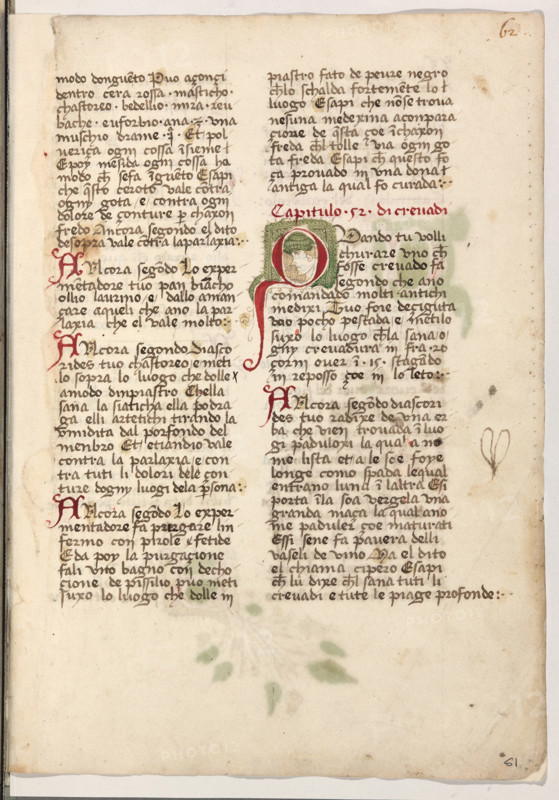 62
modo donguēto Puo açonçi
dentro cera rossa · masticho ·
chastoreo · bedellio · mira · reu
bache · euforbio · ana · ʒ · una
muschio drame · j · Et pol
neriça ogni cossa īsieme ł
Epoy mesida ogni cossa ha
modo cħ sefa īguēto Esapi
che q̄sto ceroto vale cōtra
ogny gota / e / contra ogni
dolore de çonture p̄ chaxon
fredo Ancora segondo el dito
desopra vale cōtra laparlaxia :~
ANcora segōdo Lo exper
mētadore tuo pan biācho
ollio laurino / e / dallo aman
çare aqueli che ano la par
laxia che el vale molto :~
ANcora segondo Diasco
rides tuo chastoreo / e / meti
lo sopra lo luogo che dolle x
amodo dinpiastro Chella
sana la siaticha ella podra
ga elli artetichi tirando la
umidita dal porfondo del
menbro Et etiandio vale
contra la parlaxia / e / con
tra tuti li dolori dele çon
ture dogny luogi dela p̄sona :~
ANcora segōdo Lo exper
mentadore fa purgare lin
fermo con pirole · fetide
E da poy la purgacione
fali uno bagno con decho
cione de pissilio puo meti
suxo lo luogo che dolle in
piastro fato de pevre negro
cħlo schalda fortemēte lo ł
luogo Esapi che nōse trova
nesuna medexina aconpara
cione de q̄sta çoe īchaxon
freda cħl tolle via ogni go
ta freda Esapi cħ questo fo
ça provado in una dona ł
antiga la qual fo curada :~
Capitulo · 52 · di crevadi
Quando tu volli
churare uno cħ
fosse crevado fa
segondo che ano
comandado molti antichi
medixi Tuo fone deciguta
uno pocho pestada / e / mētilo
suxo lo luogo cħla sana o ł
gny crevadura in fra · 20
çorni over ī · 15 · stagādo
in reposso çoe in lo leto :~
ANcora segōdo diascori
des tuo radixe de una er
ba che vien trovada ī luo
gi paduloxi la qual a no
me lista et a le soe foye
longe como spada lequal
entrano luna ī laltra Esi
porta ī la soa vergela una
granda maça la qual ano
me paduler çoe maturati
Essi sene fa pavera delli
vaseli de vino Ma el dito
el chiama cipero Esapi
cħ lu dixe cħl sana tuti li
crevadi e tute le piage profonde :~
61